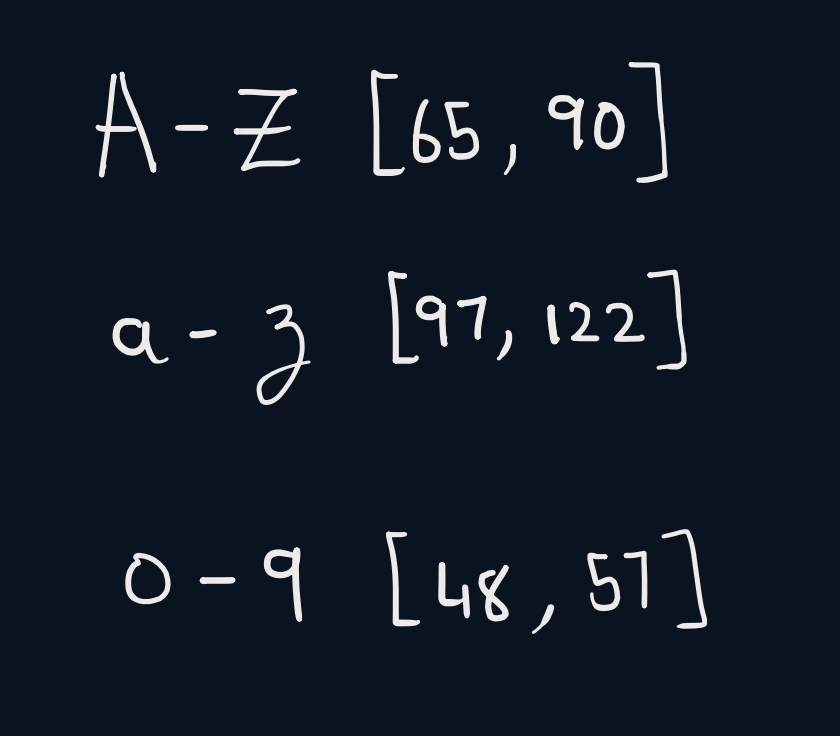 A - Z [65, 90]
a - z [97, 122]
0 - 9 [48, 57]